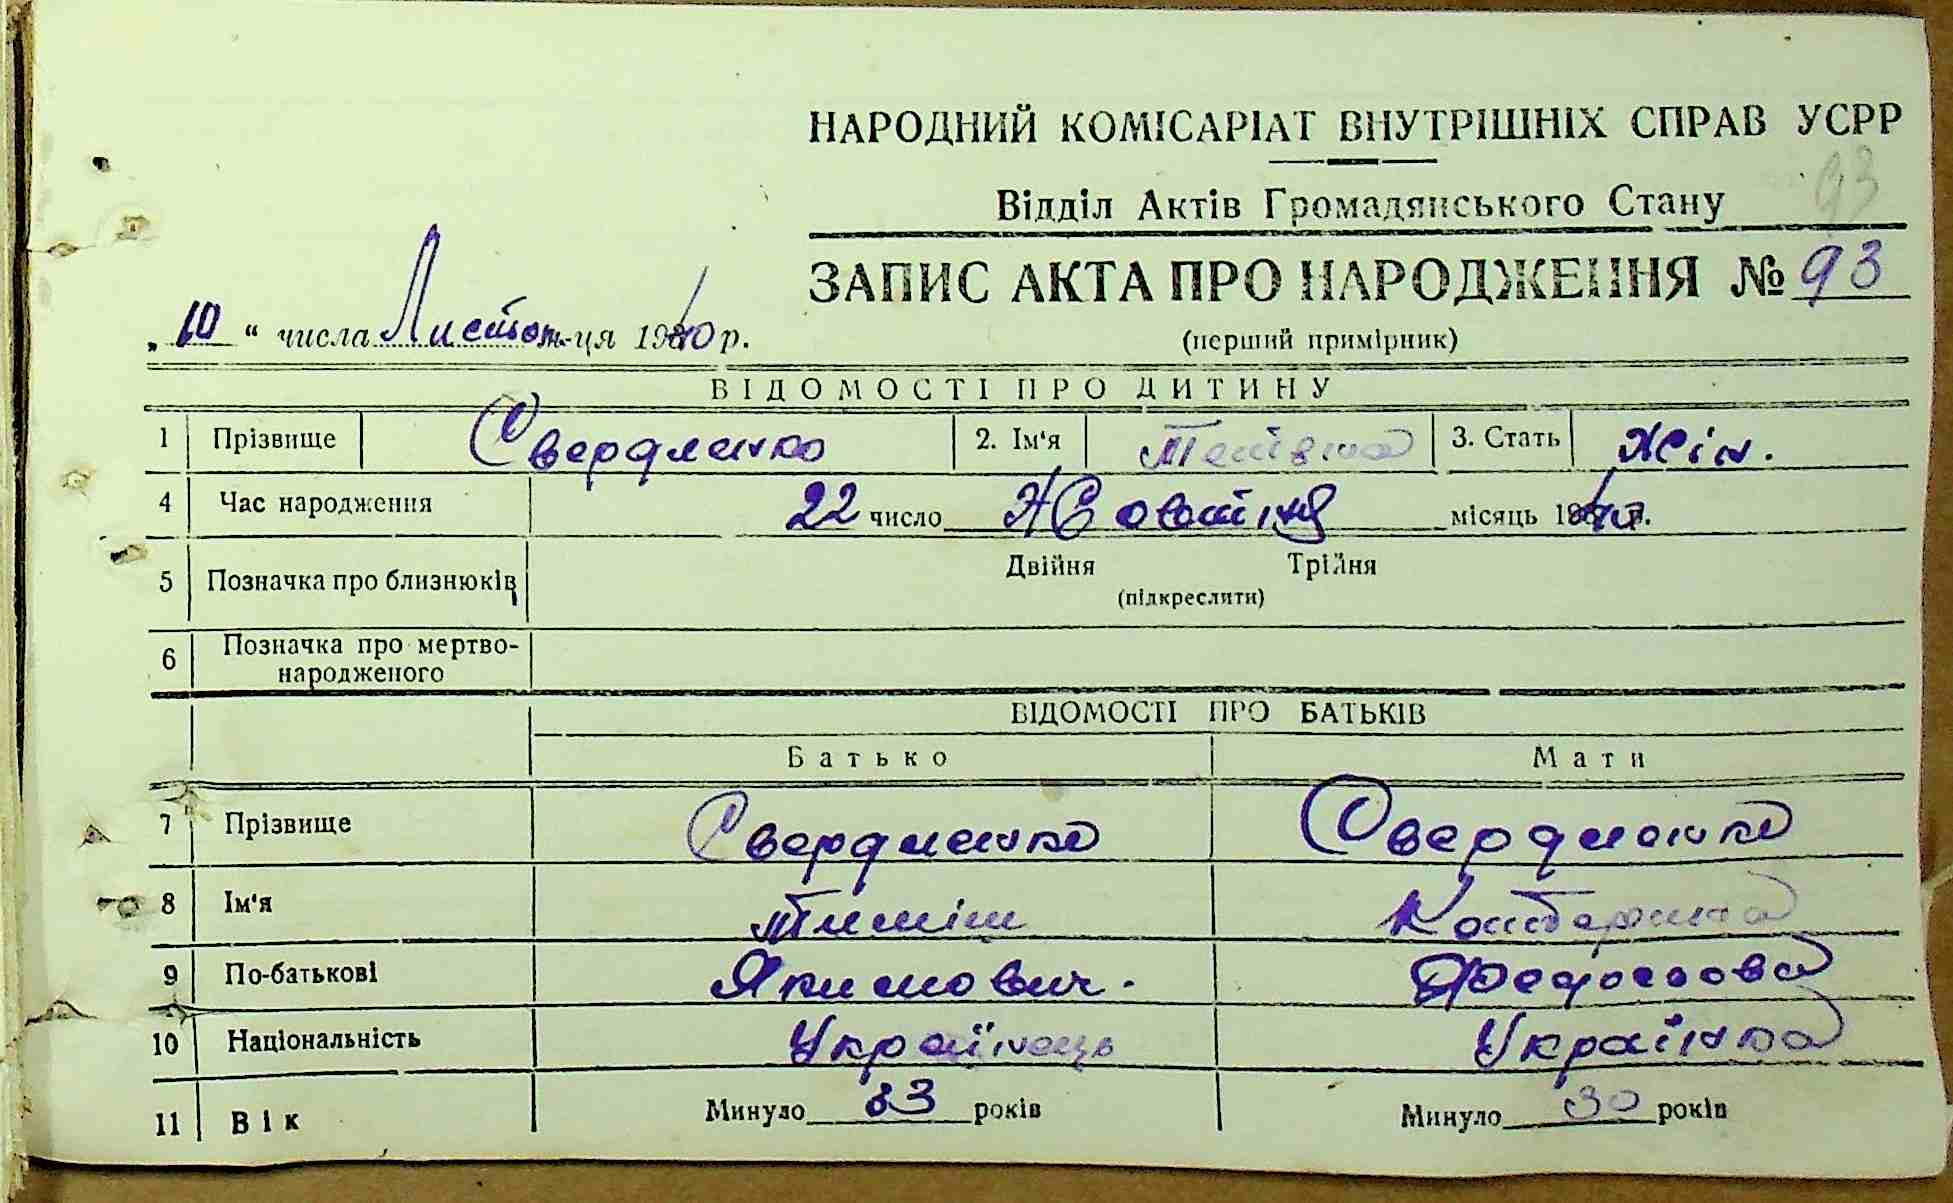 НАРОДНИЙ КОМІСАРІАТ ВНУТРІШНІХ СПРАВ УСРР
93
Відділ Актів Громадянського Стану
ЗАПИС АКТА ПРО НАРОДЖЕННЯ № 93
„ 10 “ числа Листоп-ця 1940 р.
(перший примірник)
ВІДОМОСТІ ПРО ДИТИНУ
1 Прізвище Свердленко 2. Ім'я 3. Стать Жін.
4 Час народження 22 число Жовтня місяць 1940 р.
5 Позначка про близнюків Двійня Трійня
(підкреслити)
6 Позначка про мертво-
народженого
ВІДОМОСТІ ПРО БАТЬКІВ
Батько Мати
7 Прізвище Свердленко Свердленко
8 Ім'я Тиміш Катерина
9 По-батькові Якимович. Федосовна
10 Національність Українець Українка
11 Вік Минуло 33 років Минуло 30 років